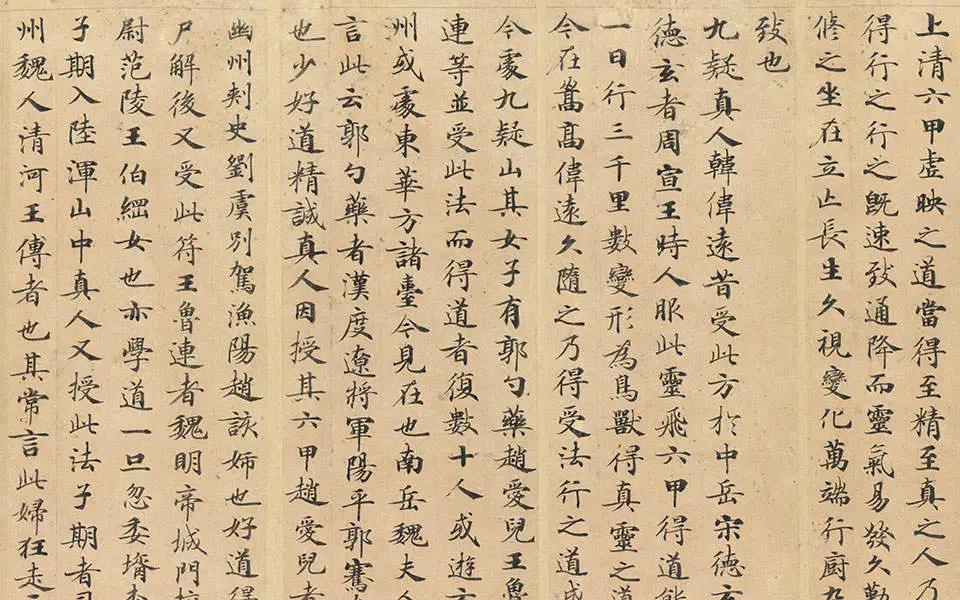 上清六甲虛映之道當得至精至真之人乃
得行之行之既速致通降而靈氣易發久勤
修之坐在立亡長生久視變化萬端行廚九
致也
九疑真人韓偉遠昔受此方於中岳宋德玄
德玄者周宣王時人服此靈飛六甲得道能
一日行三千里數變形為鳥獸得真靈之道
今在嵩高偉遠久隨之乃得受法行之道成
今處九疑山其女子有郭勺藥趙愛兒王魯
連等並受此法而得道者復數十人或遊玄
州或處東華方諸臺今見在也南岳魏夫人
言此云郭勺藥者漢度遼將軍陽平郭騫
也少好道精誠真人因授其六甲趙愛兒者
幽州刺史劉虞別駕漁陽趙該姊也好道得
尸解後又受此符王魯連者魏明帝城門校
尉范陵王伯綱女也亦學道一旦忽委壻李
子期入陸渾山中真人又授此法子期者司
州魏人清河王傳者也其常言此婦狂走